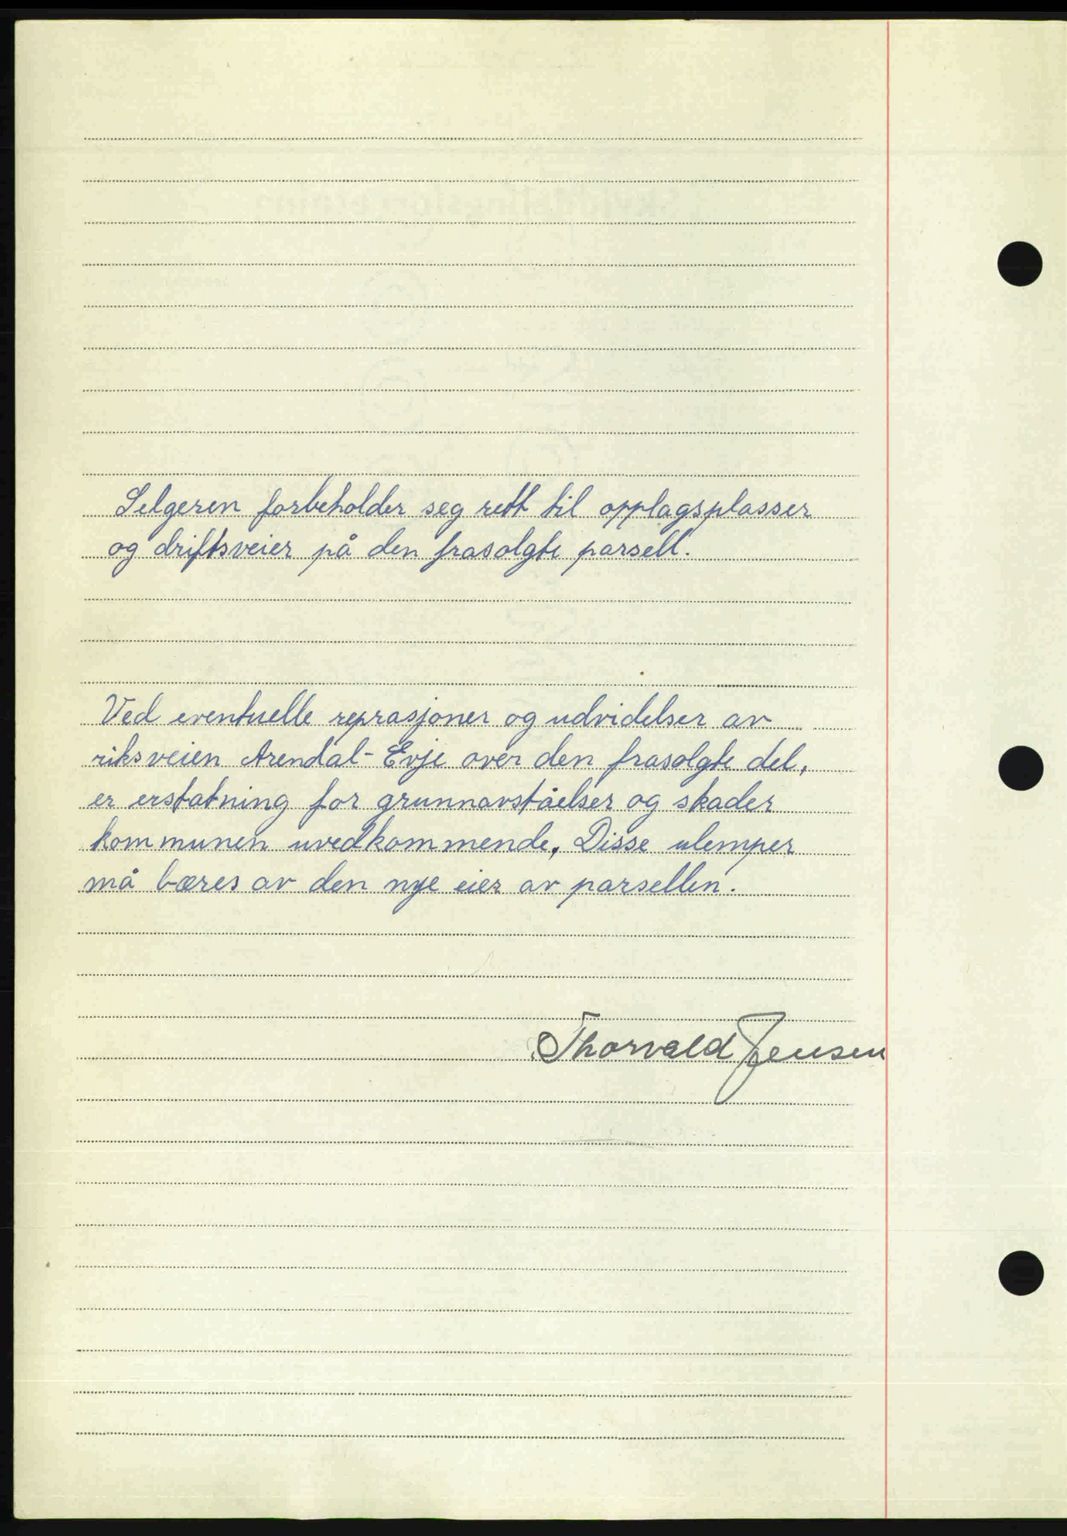 Selgeren forbeholder seg rett til opplagsplasser
og driftsveier på den frasolgte parsell.
Ved eventuelle reprasjoner og udvidelser av
riksveien Arendal-Evje over den frasolgte del,
er erstatning for grunnavståelser og skader
kommunen uvedkommende. Disse ulemper
må bæres av den nye eier av parsellen.
Thorvald Jensen